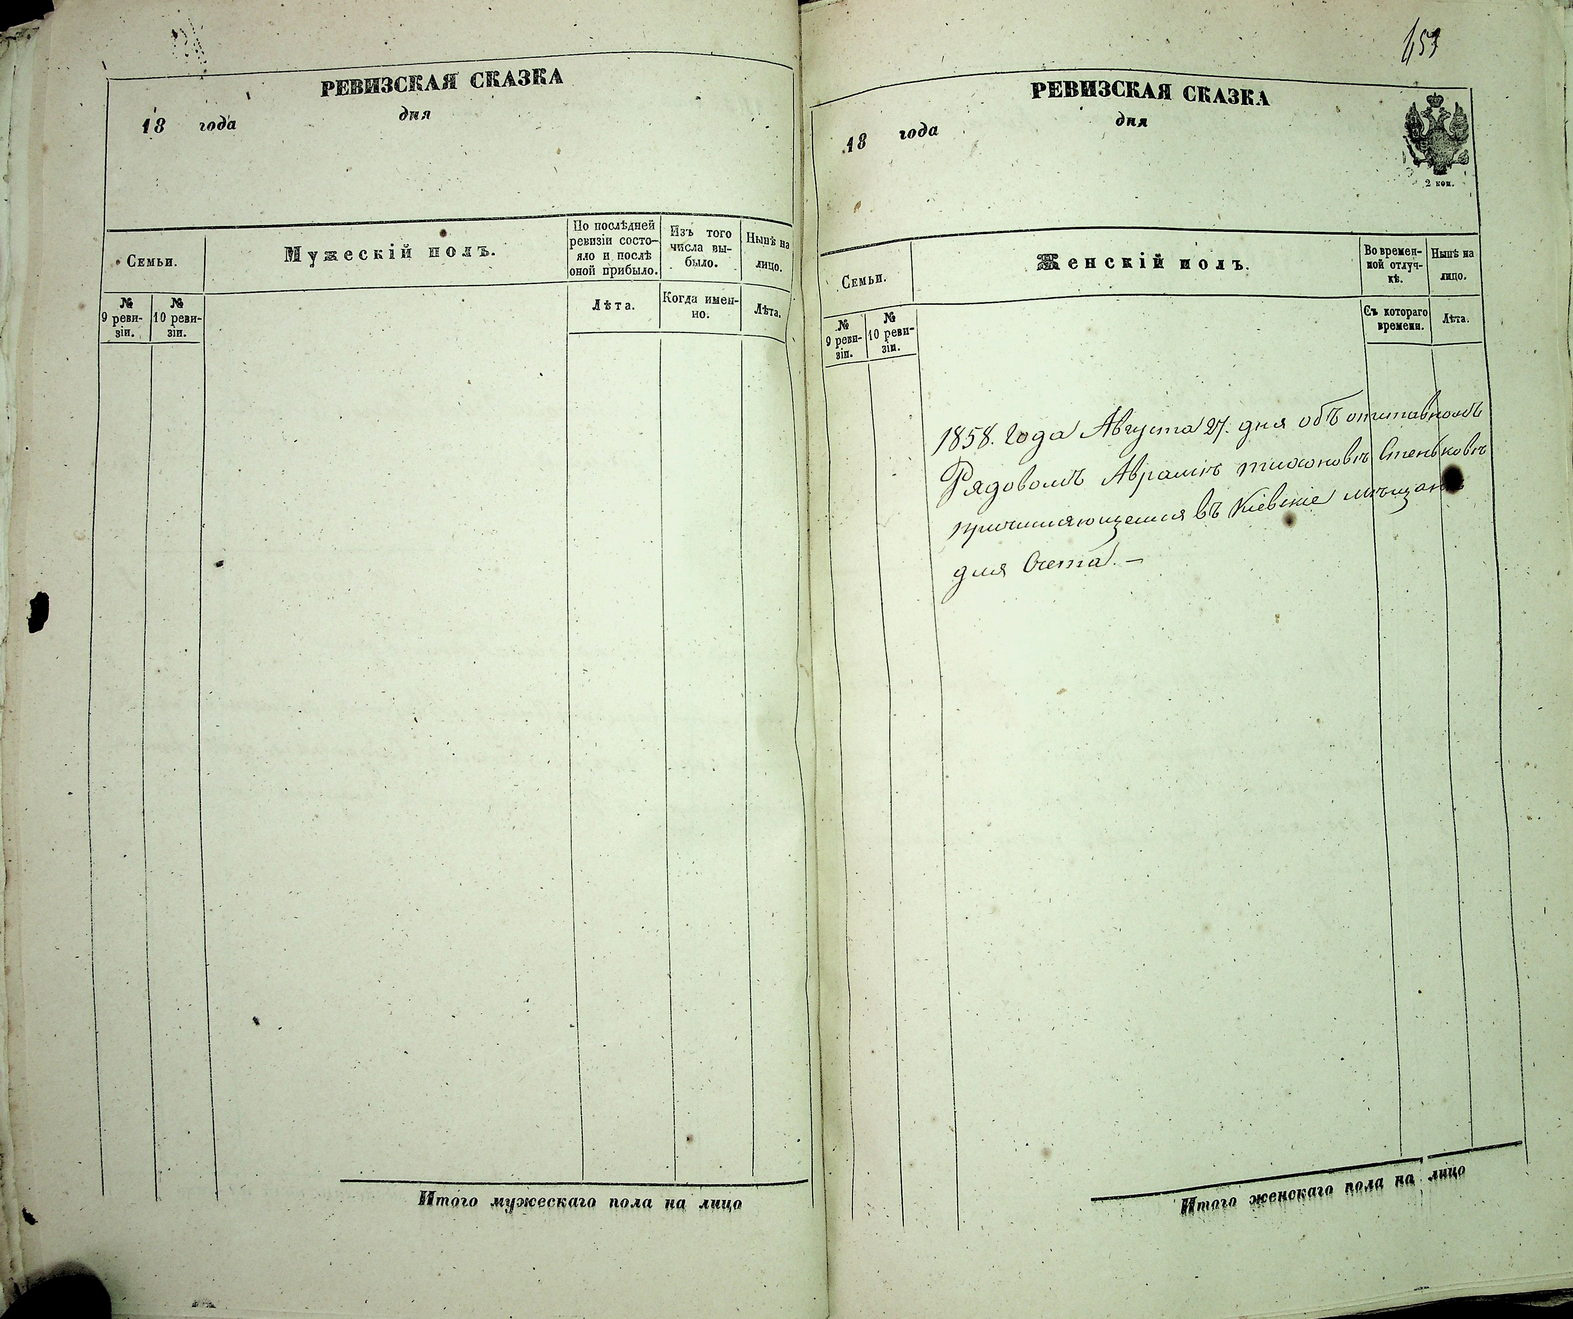 РЕВИЗСКАЯ СКАЗКА
18 года дня
Семьи.
Мужескій полъ.
По послѣдней
ревизіи состо-
яло и послѣ
оной прибыло.
Изъ того
числа вы-
было.
Нынѣ на
лицо.
№
9 реви-
зіи.
№
10 реви-
зіи.
Лѣта.
Когда имен-
но.
Лѣта.
Итого мужескаго пола на лицо
153
РЕВИЗСКАЯ СКАЗКА
18 года дня
2 коп.
Семьи.
Женскій полъ.
Во времен-
ной отлуч-
кѣ.
Нынѣ на
лицо.
№
9 реви-
зіи.
№
10 реви-
зіи.
Съ котораго
времени.
Лѣта.
1858. Года Августа 27. дня объ отставномъ
Рядовомъ Аврамѣ Тихоновѣ Стеньковѣ
причисляющемся въ Кіевскіе мѣщане
для Счета. —
Итого женскаго пола на лицо